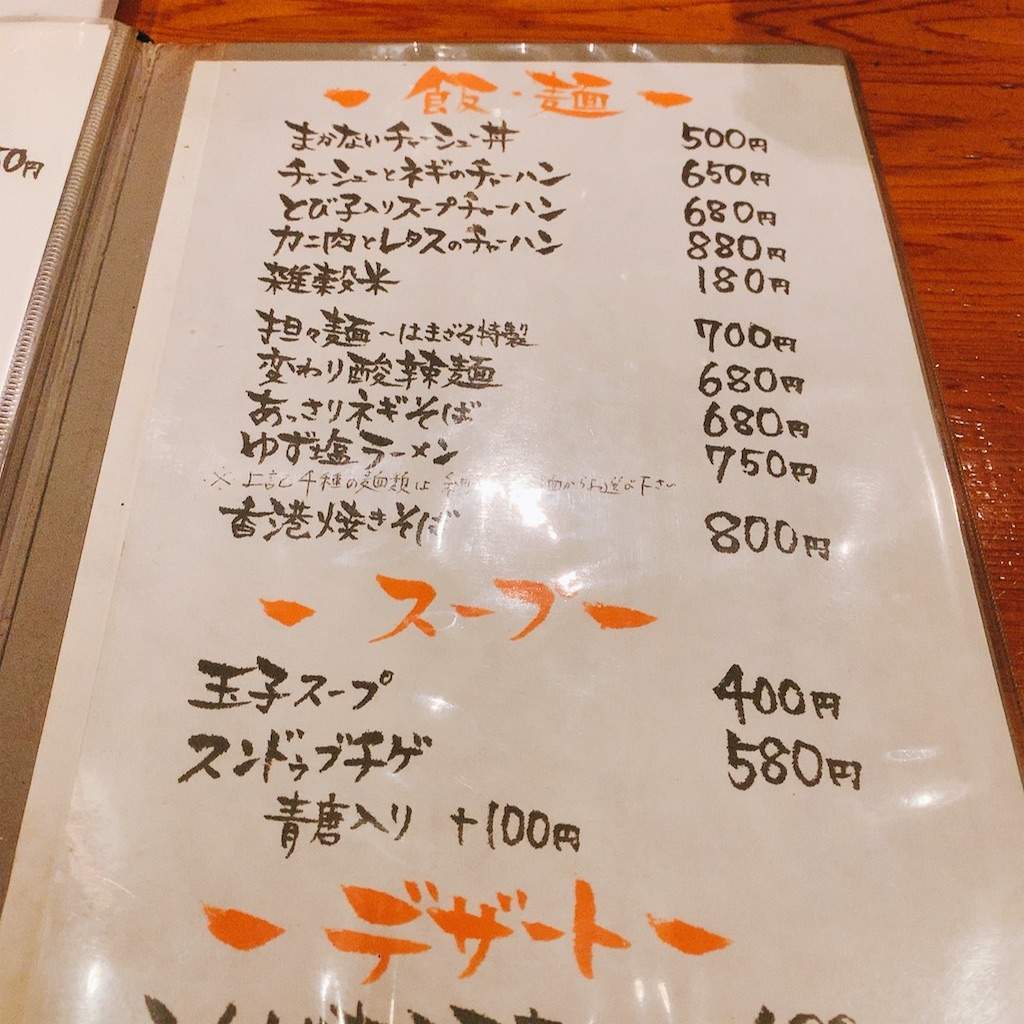 0円
- 飯・麺 -
まかないチャーシュー丼 500円
チャーシューとネギのチャーハン 650円
とび子入りスープチャーハン 680円
カニ肉とレタスのチャーハン 880円
雑穀米 180円
担々麺～はまざる特製 700円
変わり酸辣麺 680円
あっさりネギそば 680円
ゆず塩ラーメン 750円
※上記4種の麺類は からお選び下さい
香港焼きそば 800円
- スープ -
玉子スープ 400円
スンドゥブチゲ 580円
青唐入り +100円
- デザート -